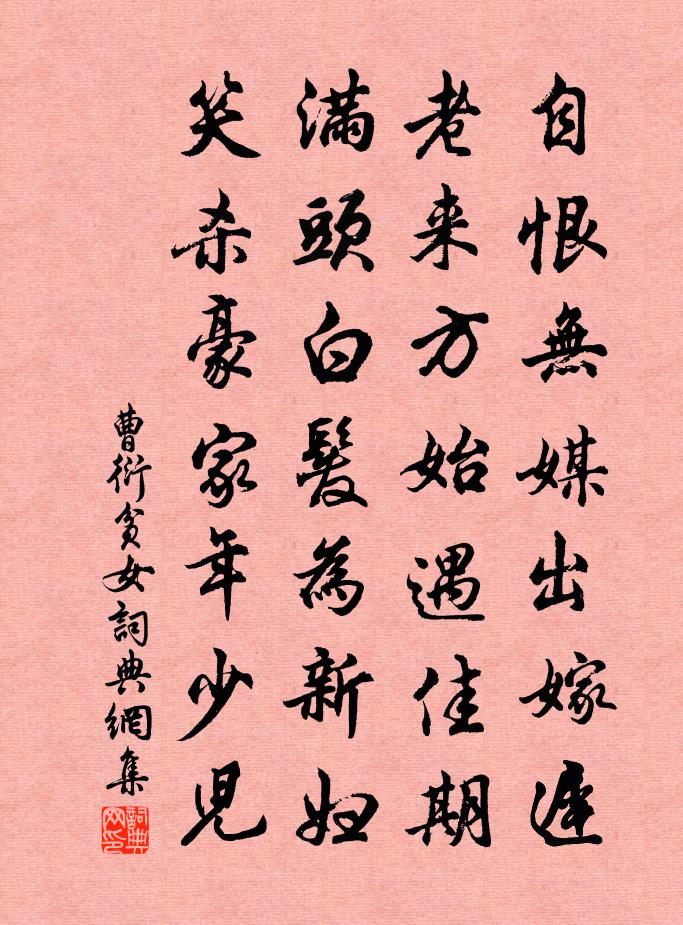 自恨無媒出嫁遲
老来方始遇佳期
滿頭白髮為新妇
笑杀豪家年少児
曹衍貧女詞典網集
詞典网印